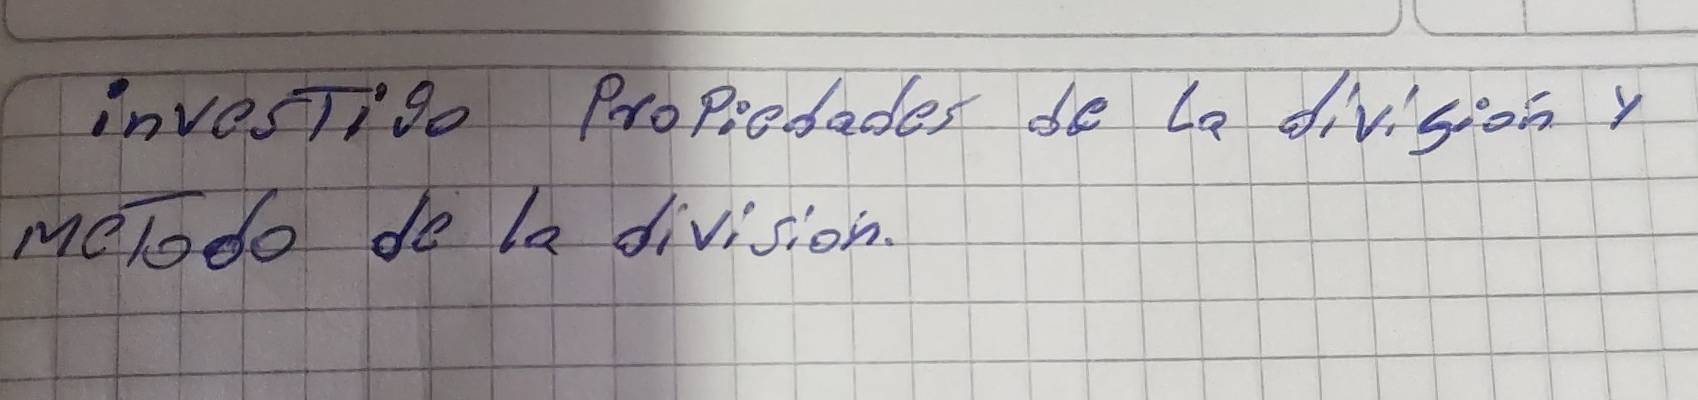 investigo Propiedades de la división y
metodo de la división.